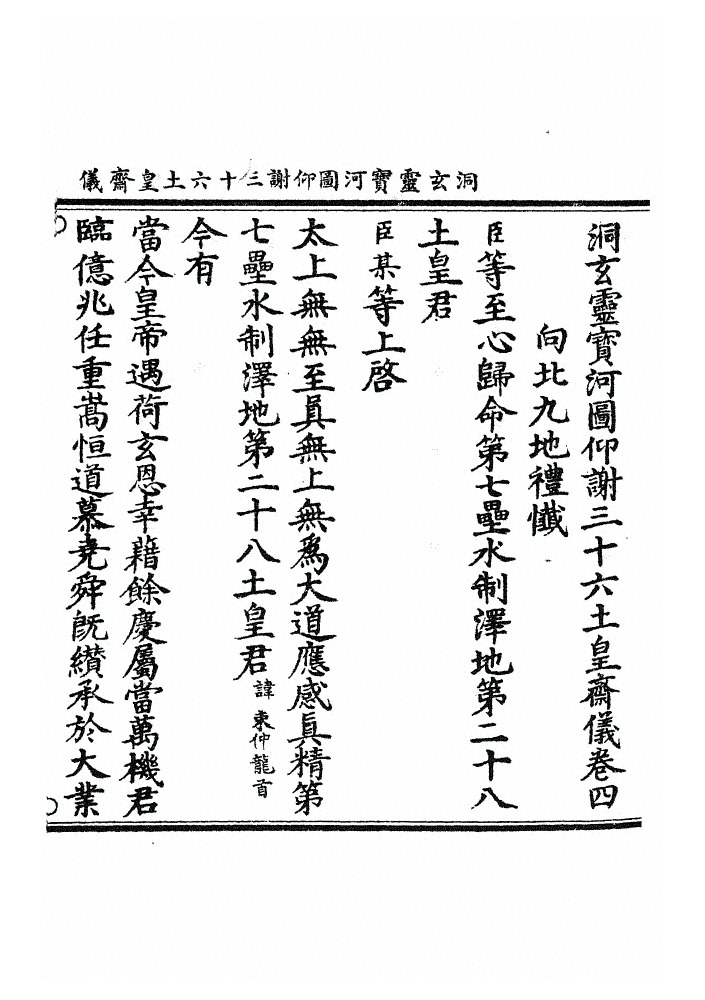 洞玄靈寶河圖仰謝三十六土皇齋儀
洞玄靈寶河圖仰謝三十六土皇齋儀卷四
向北九地禮懺
臣等至心歸命第七壘水制澤地第二十八
土皇君
臣某等上啓
太上無無至眞無上無爲大道應感眞精第
七壘水制澤地第二十八土皇君諱束仲龍首
今有
當今皇帝遇荷玄恩幸藉餘慶屬當萬機君
臨億兆任重嵩恒道慕堯舜旣纘承於大業